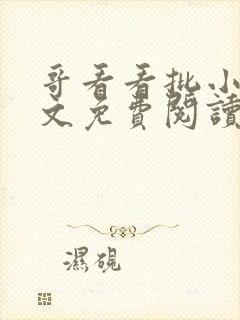 哥看看批小
文免費閱讀
濕硯